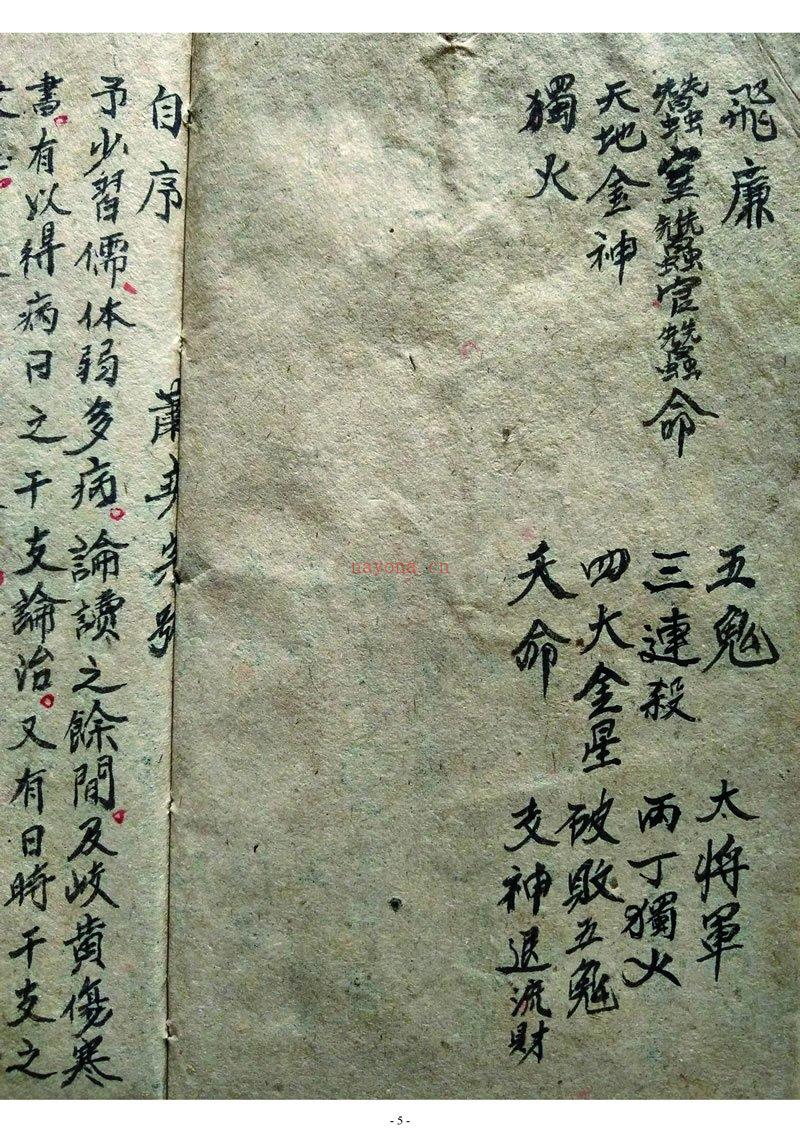 飛廉
蠶室蠶官蠶命
天地金神
獨火
五鬼
三連殺
四大金星
天命
太將軍
丙丁獨火
破敗五鬼
支神退流財
自序
予少習儒、体弱多病。論讀之餘間。及岐黄傷寒
書。有以得病日之干支論治。又有日時干支之
uayona.cn
- 5 -